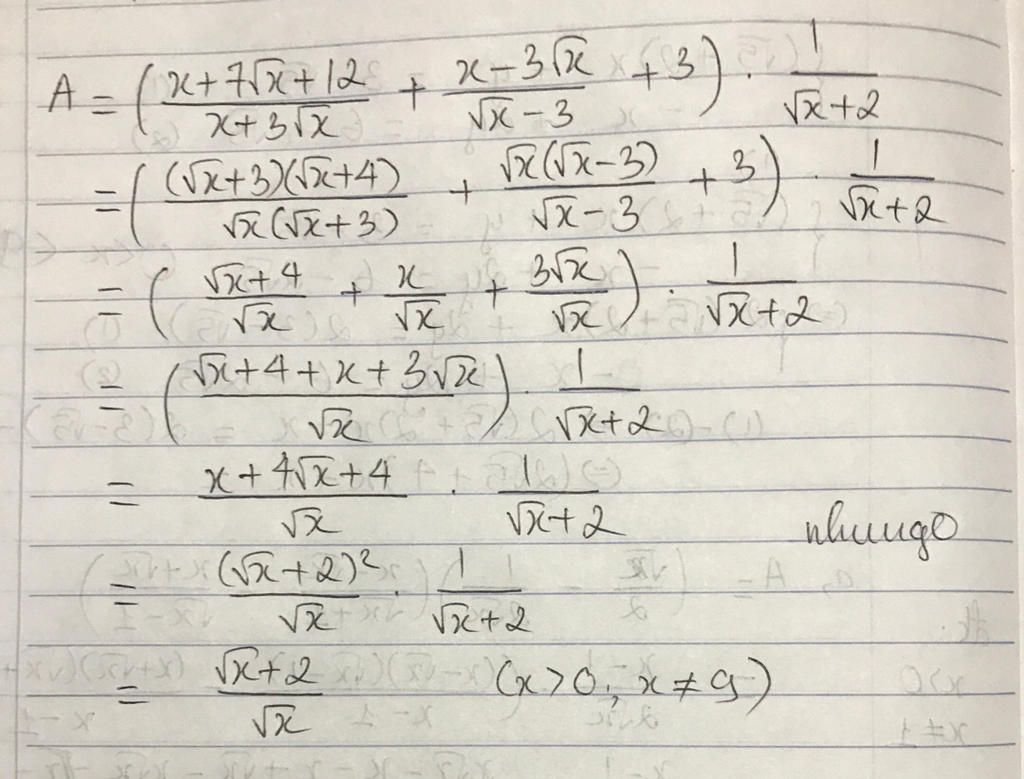 A = ( (x+7√x+12)/(x+3√x) + (x-3√x)/(√x-3) + 3 ) · 1/(√x+2)
= ( ((√x+3)(√x+4))/(√x(√x+3)) + (√x(√x-3))/(√x-3) + 3 ) · 1/(√x+2)
= ( (√x+4)/√x + x/√x + 3√x/√x ) · 1/(√x+2)
= ( (√x+4+x+3√x)/√x ) · 1/(√x+2)
= (x+4√x+4)/√x · 1/(√x+2)
nhungo
= (√x+2)²/√x · 1/(√x+2)
= (√x+2)/√x (x>0; x≠9)